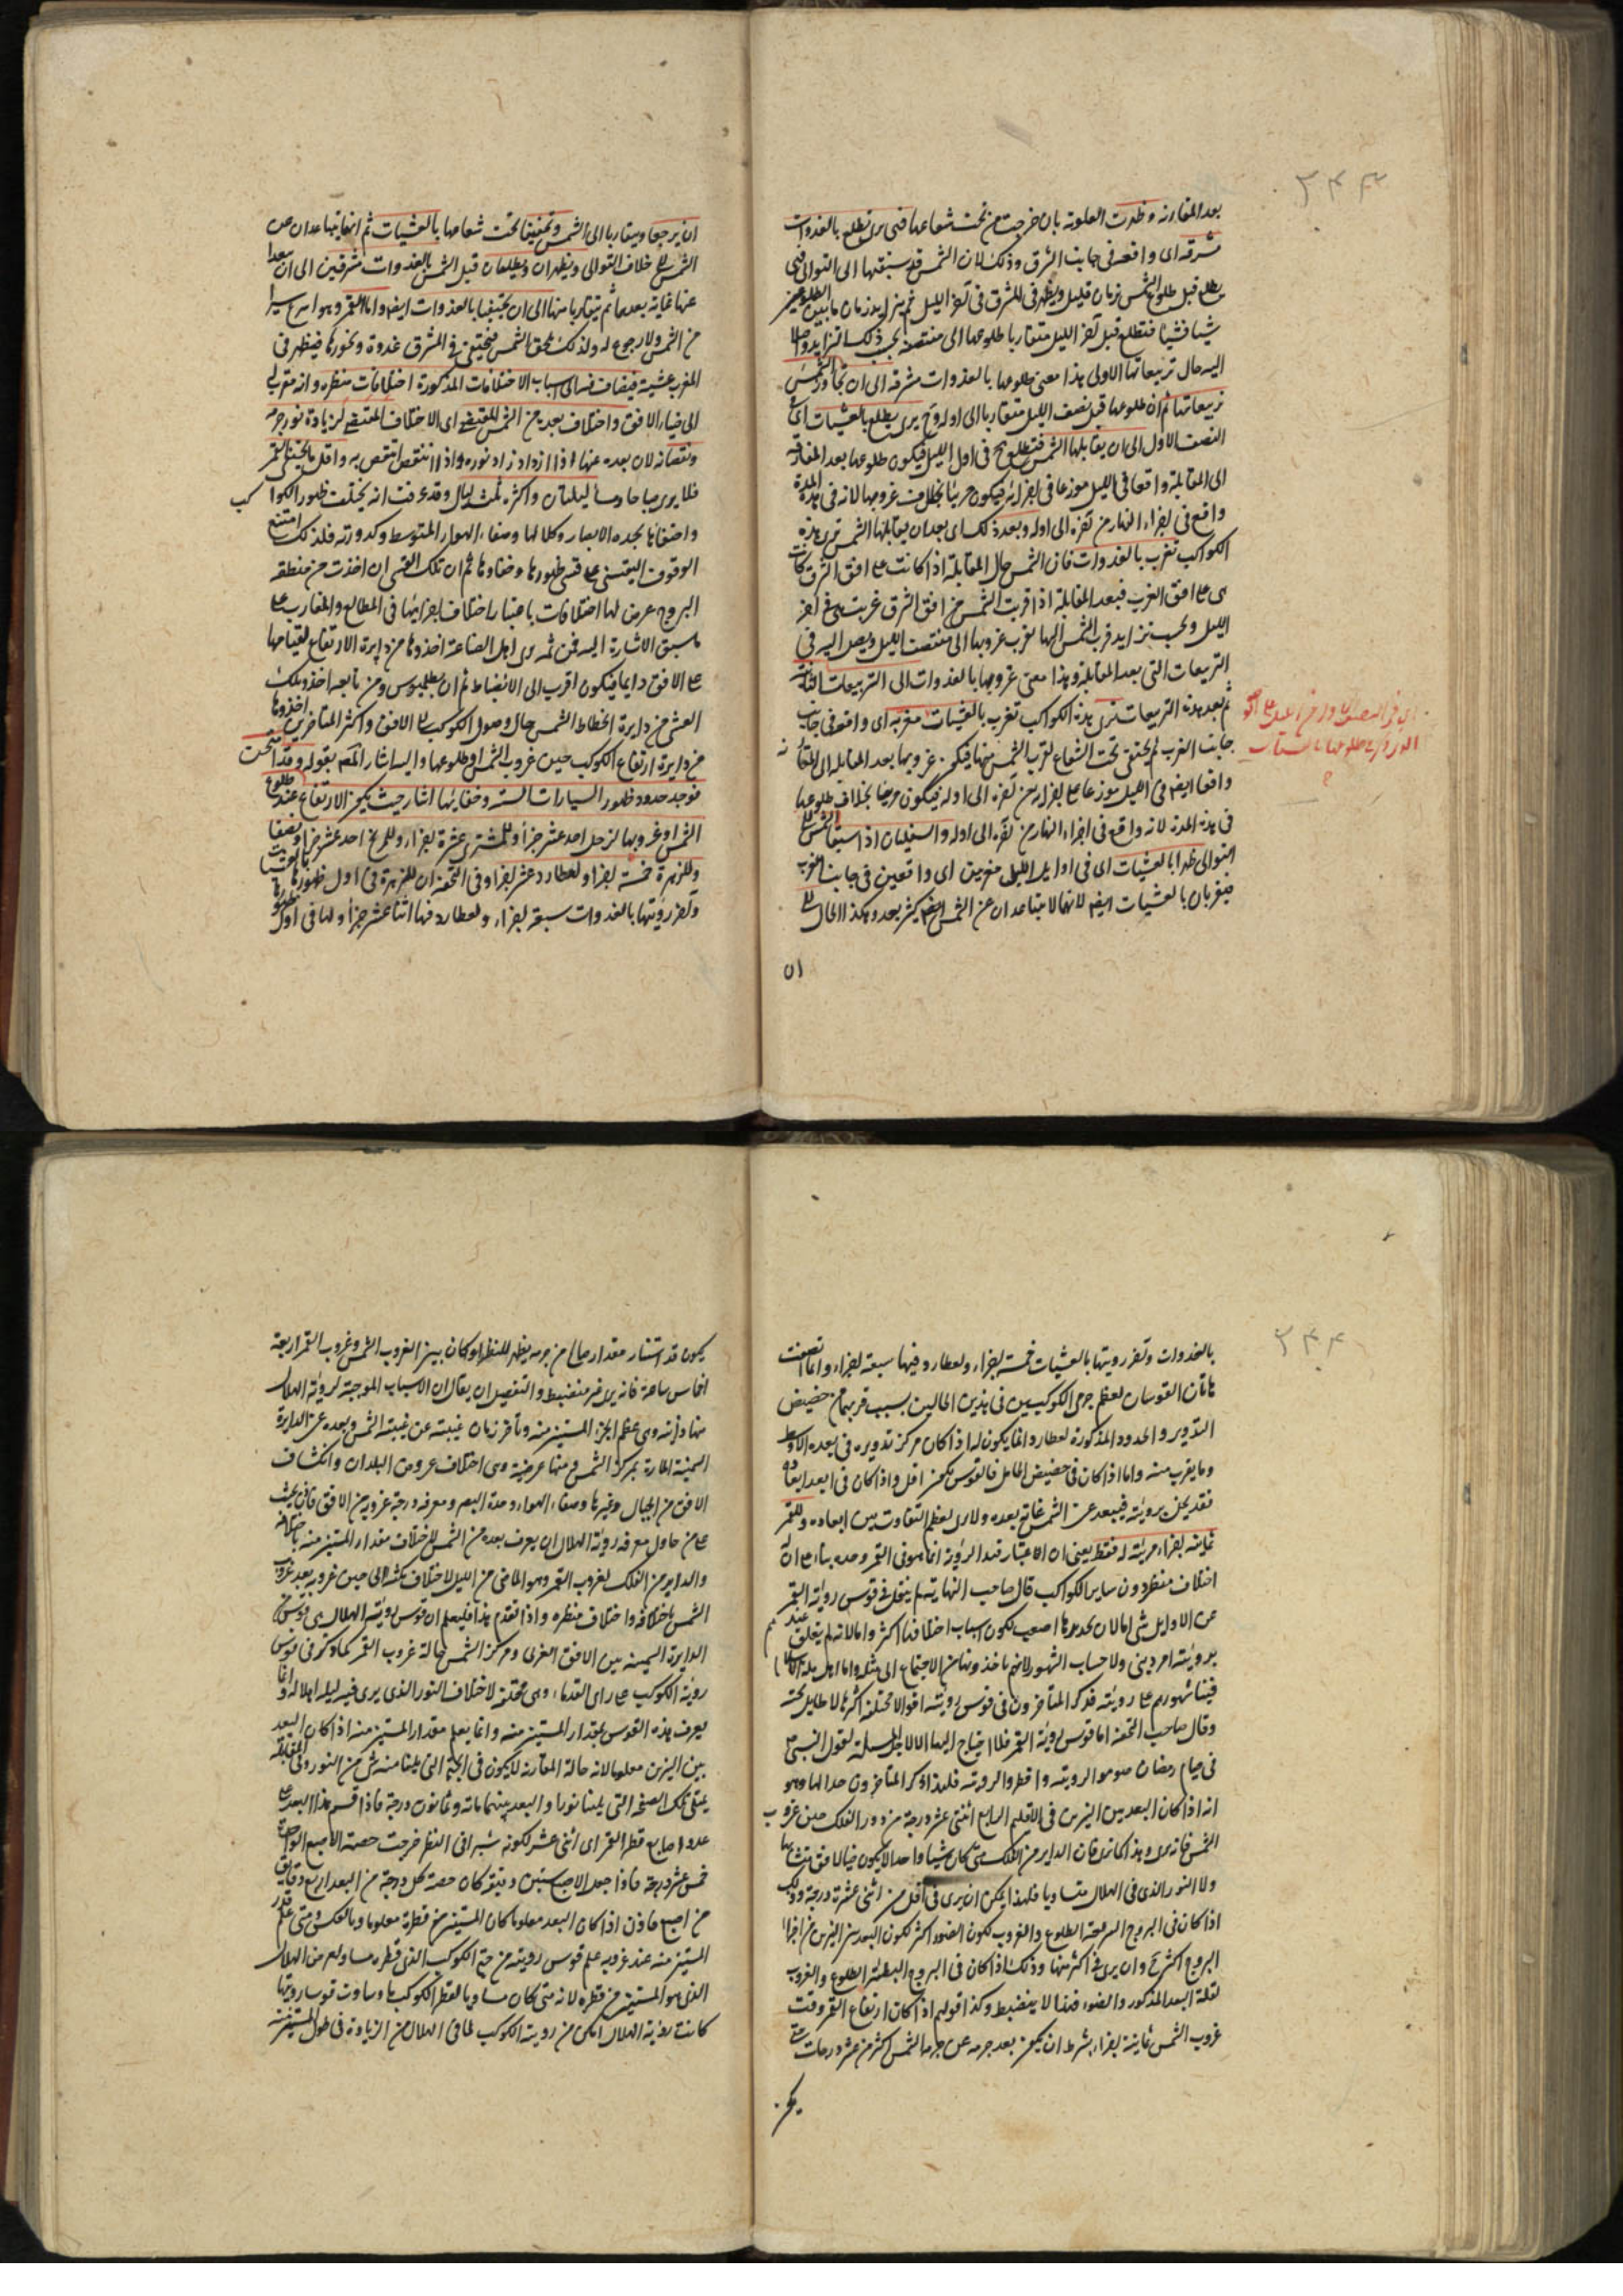 ٣٤٣
بعد المقارنة وظهرت العلوية بان خرجت من تحت شعاعها فهى يرى تطلع بالغدوات
مشرقة اى واقعة فى جانب الشرق وذلك لان الشمس قد سبقتها الى التوالى فهى
يطلع قبل طلوع الشمس زمان قليل ويظهر فى المشرق فى آخر الليل ثم يتزايد زمان ما بين الطلوعين
شيئا فشيئا فتطلع قبل آخر الليل متقاربا طلوعها الى منتصفه بحسب ذلك التزايد واصلا
اليه حال تربيعاتها الاولى هذا معنى طلوعها بالغدوات مشرقة الى ان تجاوز الشمس
تربيعاتها ثم ان طلوعها قبل نصف الليل متقاربا الى اوله وح يرى يطلع بالعشيات اى فى
النصف الاول الى ان يقابلها الشمس فتطلع ح فى اول الليل فيكون طلوعها بعد المفارقة
الى المقابلة واقعا فى الليل موزعا فى اجزائه فيكون مرئيا بخلاف غروبها لانه فى هذه المدة
واقع فى اجزاء النهار من آخره الى اوله وبعد ذلك اى بعد ان يقابلها الشمس ترى هذه
الكواكب تغرب بالغدوات فان الشمس حال المقابلة اذا كانت على افق الشرق كانت
هى على افق الغرب فبعد المقابلة اذا قربت الشمس من افق الشرق غربت هى فى آخر
الليل وبحسب تزايد قرب الشمس اليها يقرب غروبها الى منتصف الليل ويصل اليه فى
التربيعات التى بعد المقابلة وهذا معنى غروبها بالغدوات الى التربيعات الثانية
ثم بعد هذه التربيعات ترى هذه الكواكب تغرب بالعشيات مغربة اى واقعة فى جانب
جانب الغرب ثم يختفى تحت الشعاع لقرب الشمس منها فيكون غروبها بعد المقابلة الى المقارنة
واقعا ايضا فى الليل موزعا على اجزائه من آخره الى اوله فيكون مرئيا بخلاف طلوعها
فى هذه المدة لانه واقع فى اجزاء النهار من آخره الى اوله والسفليان اذا سبقا الشمس الى
التوالى ظهرا بالعشيات اى فى اوايل الليل مغربين اى واقعين فى جانب الغرب
فيغربان بالعشيات ايضا لانهما لا يتباعدان عن الشمس كثير بعد وهكذا الحال الى
ان
ان يرجعا ويتقاربا الى الشمس ويختفيا تحت شعاعها بالعشيات ثم انهما يتباعدان عن
الشمس الى خلاف التوالى ويظهران ويطلعان قبل الشمس بالغدوات مشرقين الى ان يبعدا
عنها غاية بعدهما ثم يتقاربا منها الى ان يختفيا بالغدوات ايضا واما القمر وهو اسرع سيرا
من الشمس ولا رجوع له ولذلك يلحق الشمس فيختفى فى المشرق غدوة ويتجاوزها فيظهر فى
المغرب عشية فيضاف فيه الى اسباب الاختلافات المذكورة اختلافات منظره وانه مقرب
الى ضياء الافق واختلاف بعده من الشمس المقتضى اى الاختلاف المقتضى لزيادة نور جرمه
ونقصانه لان بعده عنها اذا ازداد زاد نوره واذا انتقص انتقص به واقل ما يختفى القمر
فلا يرى صباحا ومساء ليلتان واكثره ثلث ليال وقد عرفت انه يختلف ظهور الكواكب
واختفاؤها بحدة الابصار وكلالها وصفاء الهواء المتوسط وكدورته فلذلك امتنع
الوقوف اليقينى على قسى ظهورها وخفاءها ثم ان تلك القسى ان اخذت من منطقة
البروج عرض لها اختلافات باعتبار اختلاف اجزائها فى المطالع والمغارب على
ما سبق الاشارة اليه فمن ثمه يرى اهل الصناعة اخذوها من دايرة الارتفاع لقيامها
على الافق دايما فيكون اقرب الى الانضباط ثم ان بطلميوس ومن تابعه اخذوا تلك
القسى من دايرة انحطاط الشمس حال وصول الكوكب الى الافق واكثر المتأخرين اخذوها
من دايرة ارتفاع الكوكب حين غروب الشمس او طلوعها واليه اشار المص بقوله وقد امتحنت
فوجد حدود ظهور السيارات الستة وخفائها اشار حيث يكون الارتفاع عند طلوع
الشمس او غروبها لزحل احد عشر جزأ وللمشترى عشرة اجزاء وللمريخ احد عشر جزأ ونصفا
وللزهرة خمسة اجزاء ولعطارد عشر اجزاء وفى التحفة ان للزهرة فى اول ظهورها بالعشيات
وآخر رؤيتها بالغدوات سبعة اجزاء ولعطارد فيها اثنا عشر جزأ ولها فى اول ظهورها
٣٤٤
بالغدوات وآخر رؤيتها بالعشيات خمسة اجزاء ولعطارد فيها سبعة اجزاء وانما اتصفت
هاتان القوسان لعظم جرمى الكوكبين فى هذين الحالين بسبب قربهما من حضيض
التدوير والحدود المذكورة لعطارد انما يكون له اذا كان مركز تدويره فى بعده الاوسط
وما يقرب منه واما اذا كان فى حضيض الحامل فالقوس يكون اقل واذا كان فى ابعد ابعاده
فقد يمكن برؤيته فيبعد عن الشمس غاية بعده ولا يرى لعظم التفاوت بين ابعاده وللقمر
ثمانية اجزاء مرئية له فقط يعنى ان الاعتبار قيد الرؤية انما هو فى القمر وحده بناء على ان له
اختلاف منظر دون ساير الكواكب قال صاحب النهاية لم ينقل فى قوس رؤية القمر
عن الاوايل شئ اما لان تحديدها اصعب لكون اسباب اختلافها اكثر واما لانه لم يتعلق عندهم
برؤيته امر دينى ولا حساب الشهور لانهم ياخذونها من الاجتماع الى مثله واما اهل ملة الاسلام
فبنا شهورهم على رؤيته فذكر المتأخرون فى قوس رؤيته اقوالا مختلفة اكثرها لا طايل تحته
وقال صاحب التحفة اما قوس رؤية القمر فلا احتياج اليها الا لاجل المسلمة لقول النبى ع
فى صيام رمضان صوموا لرؤيته وافطروا لرؤيته فلهذا ذكر المتأخرون حدا لها وهو
انه اذا كان البعد بين النيرين فى الاقليم الرابع اثنتى عشر درجة من دور الفلك حين غروب
الشمس فانه يرى وهذا كانه فان الداير من الفلك متى كان شيئا واحدا لا يكون ضياء الافق متشابها
ولا النور الذى فى الهلال متساويا فلهذا يمكن ان يرى فى اقل من اثنى عشرة درجة وذلك
اذا كان فى البروج السريعة الطلوع والغروب لكون الضوء اكثر لكون البعد بين النيرين من اجزاء
البروج اكثر ح وان يرى فى اكثر منها وذلك اذا كان فى البروج البطيئة الطلوع والغروب
لقلة البعد المذكور والضوء فهذا لا ينضبط وكذا قولهم اذا كان ارتفاع القمر وقت
غروب الشمس ثمانية اجزاء بشرط ان يكون بعد جرمه عن جرم الشمس اكثر من عشر درجات حتى
يكون
يكون قد استنار مقدار صالح من جرمه يظهر للنظر او كان بين الغروب الشمس وغروب القمر اربعة
اخماس ساعة فانه يرى غير منضبط والتفصيل ان يقال ان الاسباب الموجبة لرؤية الهلال
منها ذاتية وهى عظم الجزء المستنير منه وتأخر زمان غيبته عن غيبة الشمس وبعده عن الدايرة
السمتية المارة بمركز الشمس ومنها عرضية وهى اختلاف عروض البلدان وانكشاف
الافق من الجبال وغيرها وصفاء الهواء وحدة البصر ومعرفة درجة غروبه من الافق فاذن يجب
على من حاول معرفة رؤية الهلال ان يعرف بعده من الشمس لاختلاف مقدار المستنير منه باختلافه
والداير من الفلك لغروب القمر وهو الماضى من الليل لاختلاف مكثه الى حين غروبه بعد غروب
الشمس باختلافه واختلاف منظره واذا تقدم هذا فليعلم ان قوس رؤية الهلال هى قوس من
الدايرة السمتية بين الافق الغربى ومركز الشمس حالة غروب القمر كما ذكر فى قوس
رؤية الكوكب على راى القدماء وهى مختلفة لاختلاف النور الذى يرى فيه ليلة اهلاله وانما
يعرف هذه القوس بمقدار المستنير منه وانما يعلم مقدار المستنير منه اذا كان البعد
بين النيرين معلوما لانه حالة المقارنة لا يكون فى الجهة التى يلينا منه شئ من النور وفى المقابلة
يمتلى تلك الصفحة التى يلينا نورا والبعد بينهما مائة وثمانون درجة فاذا قسم هذا البعد على
عدد اصابع قطر القمر اى اثنى عشر لكونه شبرا فى النظر خرجت حصة الاصبع الواحدة
خمس عشر درجة فاذا جعل الاصبع ستين دقيقة كان حصة كل درجة من البعد اربع دقايق
من اصبع فاذن اذا كان البعد معلوما كان المستنير من قطره معلوما وبالعكس ومتى علم قدر
المستنير منه عند غروبه علم قوس رؤيته من جهة الكوكب الذى قطره مساو له من الهلال
الذى هو المستنير من قطره لانه متى كان مساويا لقطر الكوكب ما وساوت قوسا رؤيتها
كانت رؤية الهلال امكن من رؤية الكوكب لما فى الهلال من الزيادة فى طول المستنير منه